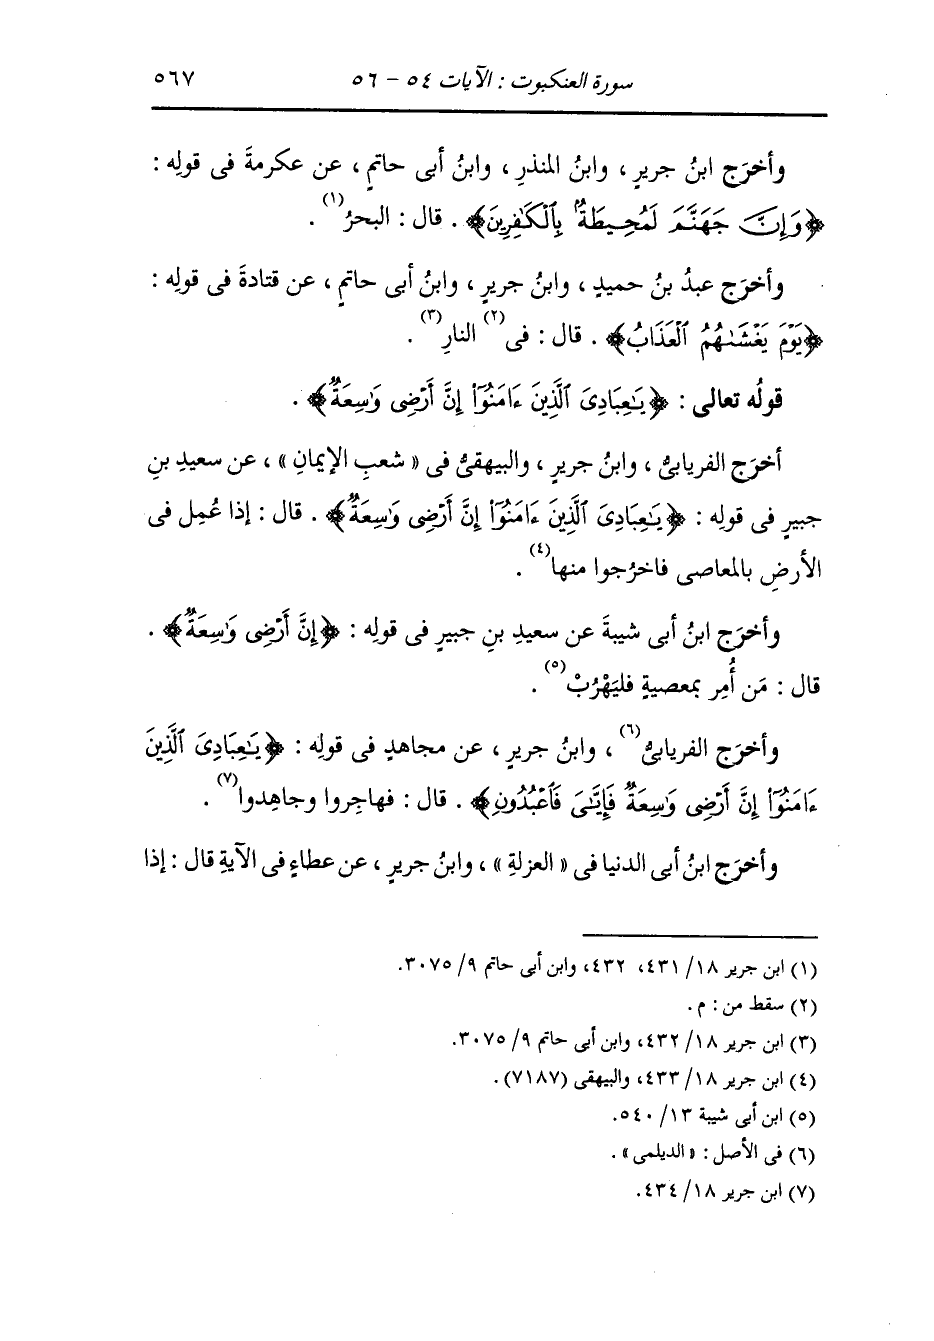 سورة العنكبوت : الآيات ٥٤ - ٥٦ ٥٦٧
وأخرَج ابنُ جريرٍ ، وابنُ المنذرِ ، وابنُ أبى حاتمٍ ، عن عكرمةَ فى قولِه :
﴿وَإِنَّ جَهَنَّمَ لَمُحِيطَةٌۢ بِٱلْكَٰفِرِينَ﴾ . قال : البحرُ(١) .
وأخرَج عبدُ بنُ حميدٍ ، وابنُ جريرٍ ، وابنُ أبى حاتمٍ ، عن قتادةَ فى قولِه :
﴿يَوْمَ يَغْشَىٰهُمُ ٱلْعَذَابُ﴾ . قال : فى(٢) النارِ(٣) .
قولُه تعالى : ﴿يَٰعِبَادِىَ ٱلَّذِينَ ءَامَنُوٓا۟ إِنَّ أَرْضِى وَٰسِعَةٌ﴾ .
أخرَج الفريابىُّ ، وابنُ جريرٍ ، والبيهقىُّ فى « شعبِ الإيمانِ » ، عن سعيدِ بنِ
جبيرٍ فى قولِه : ﴿يَٰعِبَادِىَ ٱلَّذِينَ ءَامَنُوٓا۟ إِنَّ أَرْضِى وَٰسِعَةٌ﴾ . قال : إذا عُمِل فى
الأرضِ بالمعاصى فاخرُجوا منها(٤) .
وأخرَج ابنُ أبى شيبةَ عن سعيدِ بنِ جبيرٍ فى قولِه : ﴿إِنَّ أَرْضِى وَٰسِعَةٌ﴾ .
قال : مَن أُمِر بمعصيةٍ فليَهْرُبْ(٥) .
وأخرَج الفريابىُّ(٦) ، وابنُ جريرٍ ، عن مجاهدٍ فى قولِه : ﴿يَٰعِبَادِىَ ٱلَّذِينَ
ءَامَنُوٓا۟ إِنَّ أَرْضِى وَٰسِعَةٌ فَإِيَّٰىَ فَٱعْبُدُونِ﴾ . قال : فهاجِروا وجاهِدوا(٧) .
وأخرَج ابنُ أبى الدنيا فى « العزلةِ » ، وابنُ جريرٍ ، عن عطاءٍ فى الآيةِ قال : إذا
(١) ابن جرير ١٨/ ٤٣١، ٤٣٢، وابن أبى حاتم ٩/ ٣٠٧٥.
(٢) سقط من : م .
(٣) ابن جرير ١٨/ ٤٣٢، وابن أبى حاتم ٩/ ٣٠٧٥.
(٤) ابن جرير ١٨/ ٤٣٣، والبيهقى (٧١٨٧).
(٥) ابن أبى شيبة ١٣/ ٥٤٠.
(٦) فى الأصل : « الديلمى » .
(٧) ابن جرير ١٨/ ٤٣٤.